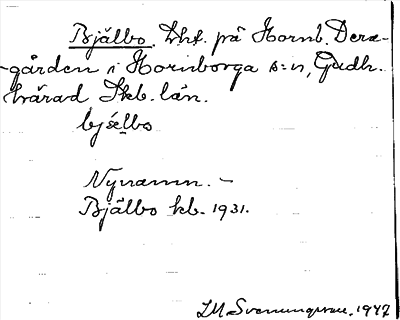 Bjälbo. Lht. på Hornb. Dera-
-gården i Hornborga s:n, Gudh.
härad Skb. län.
bjǽlbo
Nynamn. -
Bjälbo kb. 1931.
L M Svenungsson. 1947